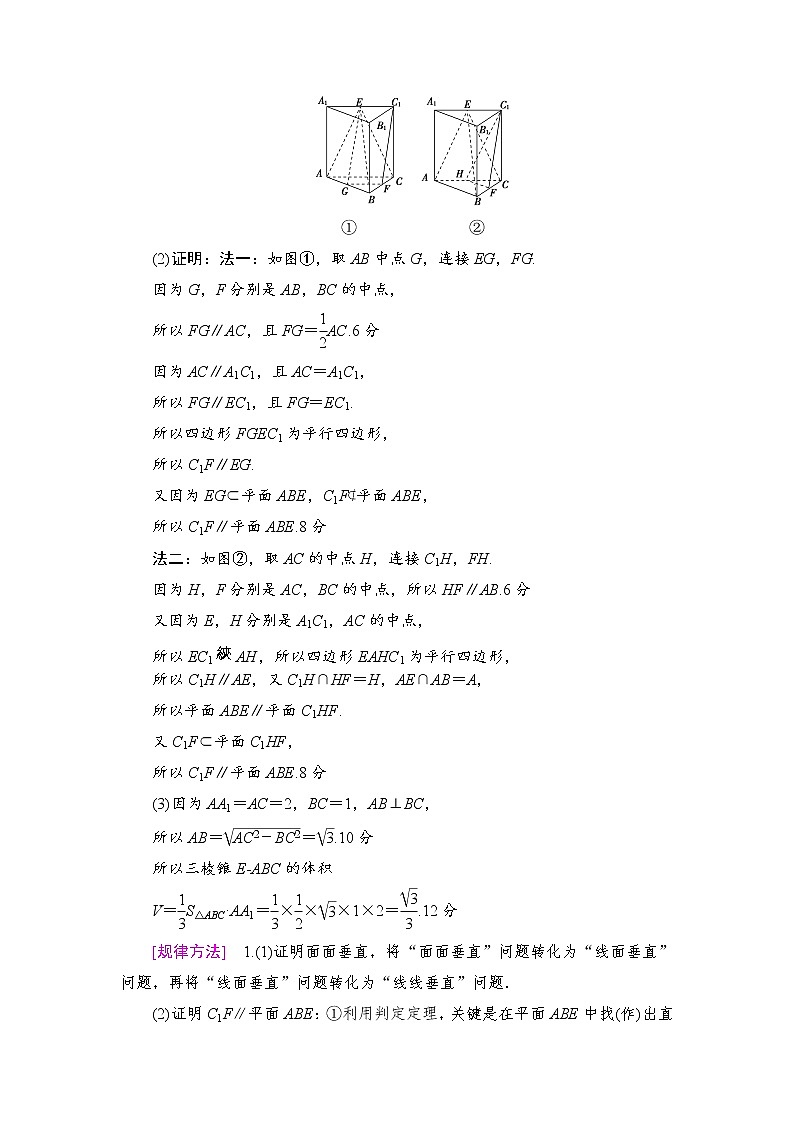 A₁ E C₁ A₁ E C₁
B₁ B₁
A C A H C
G F F
B B
① ②
(2)证明：法一：如图①，取 AB 中点 G，连接 EG，FG.
因为 G，F 分别是 AB，BC 的中点，
所以 FG∥AC，且 FG＝\frac{1}{2}AC.6 分
因为 AC∥A₁C₁，且 AC＝A₁C₁，
所以 FG∥EC₁，且 FG＝EC₁.
所以四边形 FGEC₁ 为平行四边形，
所以 C₁F∥EG.
又因为 EG⊂平面 ABE，C₁F⊄平面 ABE，
所以 C₁F∥平面 ABE.8 分
法二：如图②，取 AC 的中点 H，连接 C₁H，FH.
因为 H，F 分别是 AC，BC 的中点，所以 HF∥AB.6 分
又因为 E，H 分别是 A₁C₁，AC 的中点，
所以 EC₁ AH，所以四边形 EAHC₁ 为平行四边形，
所以 C₁H∥AE，又 C₁H∩HF＝H，AE∩AB＝A，
所以平面 ABE∥平面 C₁HF.
又 C₁F⊂平面 C₁HF，
所以 C₁F∥平面 ABE.8 分
(3)因为 AA₁＝AC＝2，BC＝1，AB⊥BC，
所以 AB＝\sqrt{AC²－BC²}＝\sqrt{3}.10 分
所以三棱锥 E-ABC 的体积
V＝\frac{1}{3}S△ABC·AA₁＝\frac{1}{3}×\frac{1}{2}×\sqrt{3}×1×2＝\frac{\sqrt{3}}{3}.12 分
[规律方法] 1.(1)证明面面垂直，将“面面垂直”问题转化为“线面垂直”
问题，再将“线面垂直”问题转化为“线线垂直”问题．
(2)证明 C₁F∥平面 ABE：①利用判定定理，关键是在平面 ABE 中找(作)出直